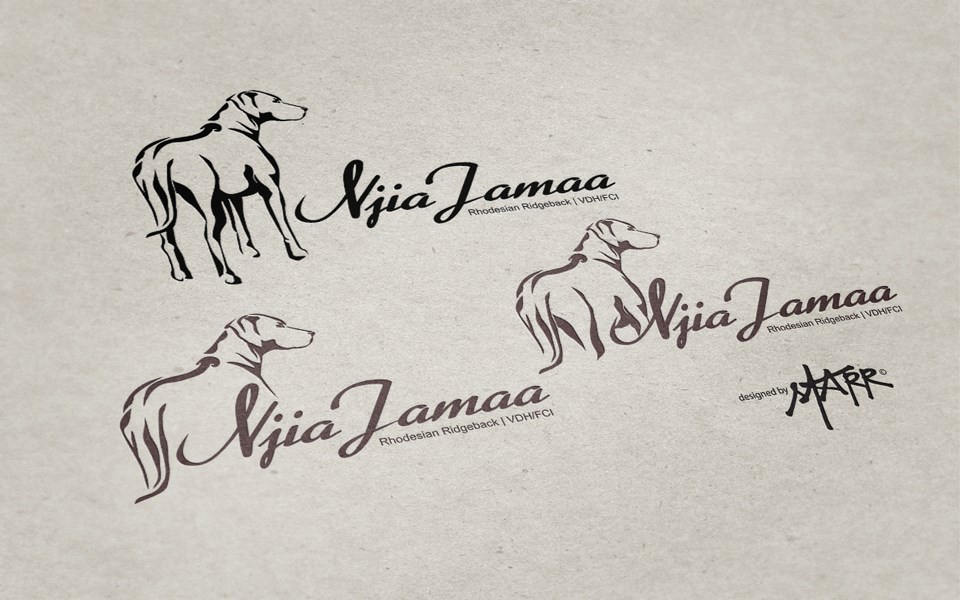 Njia Jamaa
Rhodesian Ridgeback | VDH/FCI
Njia Jamaa
Rhodesian Ridgeback | VDH/FCI
Njia Jamaa
Rhodesian Ridgeback | VDH/FCI
designed by